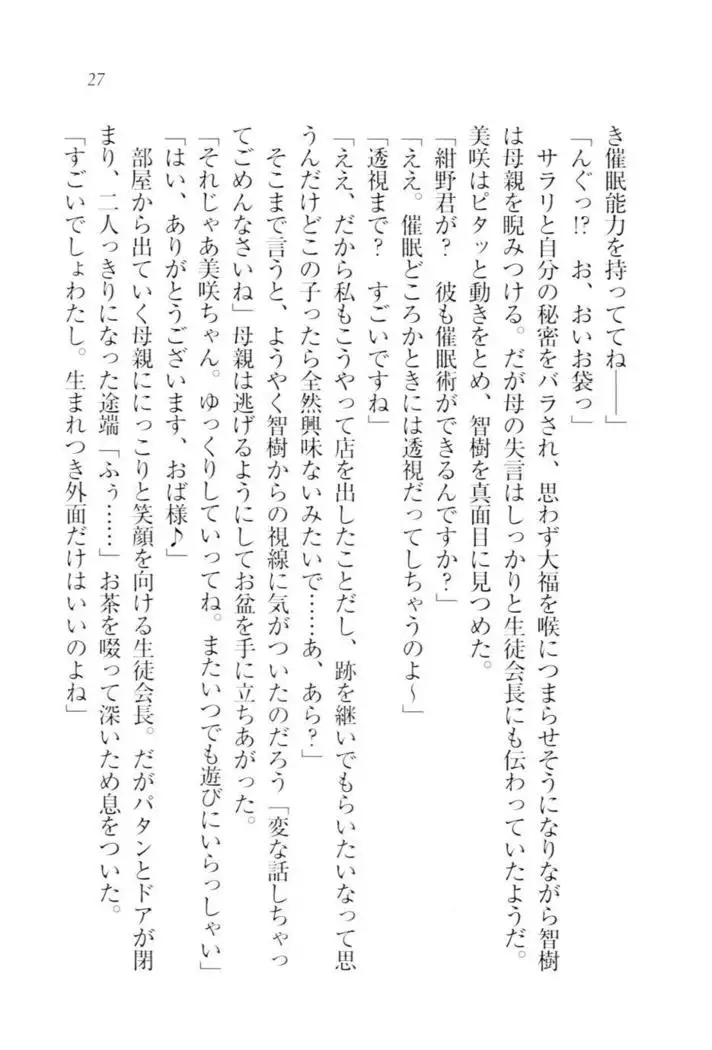 27
き催眠能力を持っててね――」
「んぐっ!?　お、おいお袋っ」
　サラリと自分の秘密をバラされ、思わず大福を喉につまらせそうになりながら智樹
は母親を睨みつける。だが母の失言はしっかりと生徒会長にも伝わっていたようだ。
美咲はピタッと動きをとめ、智樹を真面目に見つめた。
「紺野君が?　彼も催眠術ができるんですか?」
「ええ。催眠どころかときには透視だってしちゃうのよ～」
「透視まで?　すごいですね」
「ええ、だから私もこうやって店を出したことだし、跡を継いでもらいたいなって思
うんだけどこの子ったら全然興味ないみたいで……あ、あら?」
　そこまで言うと、ようやく智樹からの視線に気がついたのだろう「変な話しちゃっ
てごめんなさいね」母親は逃げるようにしてお盆を手に立ちあがった。
「それじゃあ美咲ちゃん。ゆっくりしていってね。またいつでも遊びにいらっしゃい」
「はい、ありがとうございます、おば様♪」
　部屋から出ていく母親ににっこりと笑顔を向ける生徒会長。だがパタンとドアが閉
まり、二人っきりになった途端「ふぅ……」お茶を啜って深いため息をついた。
「すごいでしょわたし。生まれつき外面だけはいいのよね」